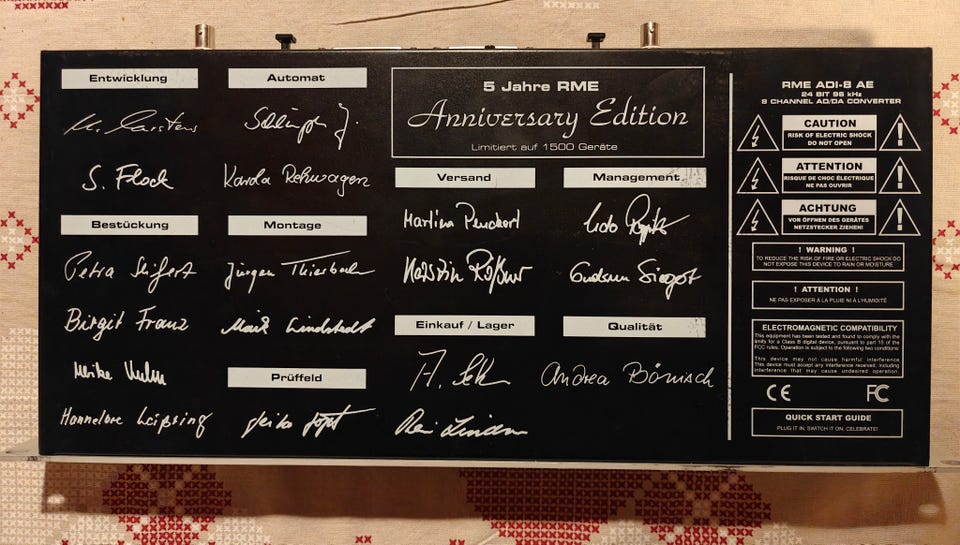 Entwicklung
M. Carstens
S. Flock
Bestückung
Petra Seifert
Birgit Franz
Hannelore Leipsing
Automat
Karola Rehwagen
Montage
Jürgen Thierbach
Maik Lindstedt
Prüffeld
5 Jahre RME
Anniversary Edition
Limitiert auf 1500 Geräte
Versand
Martina
Kerstin Roßner
Einkauf / Lager
Management
Gudrun
Qualität
Andrea Börnisch
RME ADI-8 AE
24 BIT 96 kHz
8 CHANNEL AD/DA CONVERTER
CAUTION
RISK OF ELECTRIC SHOCK
DO NOT OPEN
ATTENTION
RISQUE DE CHOC ÉLECTRIQUE
NE PAS OUVRIR
ACHTUNG
VOR ÖFFNEN DES GERÄTES
NETZSTECKER ZIEHEN!
! WARNING !
TO REDUCE THE RISK OF FIRE OR ELECTRIC SHOCK DO
NOT EXPOSE THIS DEVICE TO RAIN OR MOISTURE
! ATTENTION !
NE PAS EXPOSER À LA PLUIE NI À L'HUMIDITÉ
ELECTROMAGNETIC COMPATIBILITY
This equipment has been tested and found to comply with the
limits for a Class B digital device, pursuant to part 15 of the
FCC rules. Operation is subject to the following two conditions:
This device may not cause harmful interference
This device must accept any interference received, including
interference that may cause undesired operation.
CE FC
QUICK START GUIDE
PLUG IT IN, SWITCH IT ON, CELEBRATE!